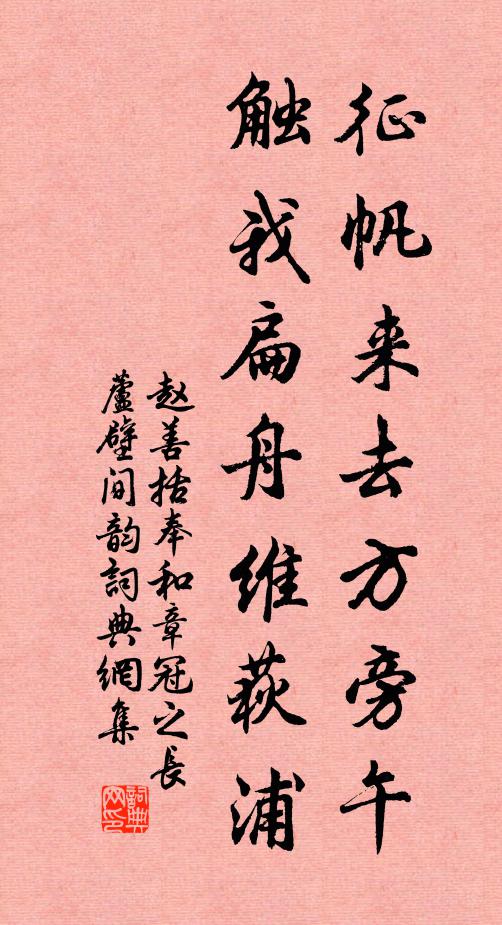 征帆来去方旁午
触我扁舟维荻浦
赵善括奉和章冠之长
蘆壁间韵詞典網集
詞典网印